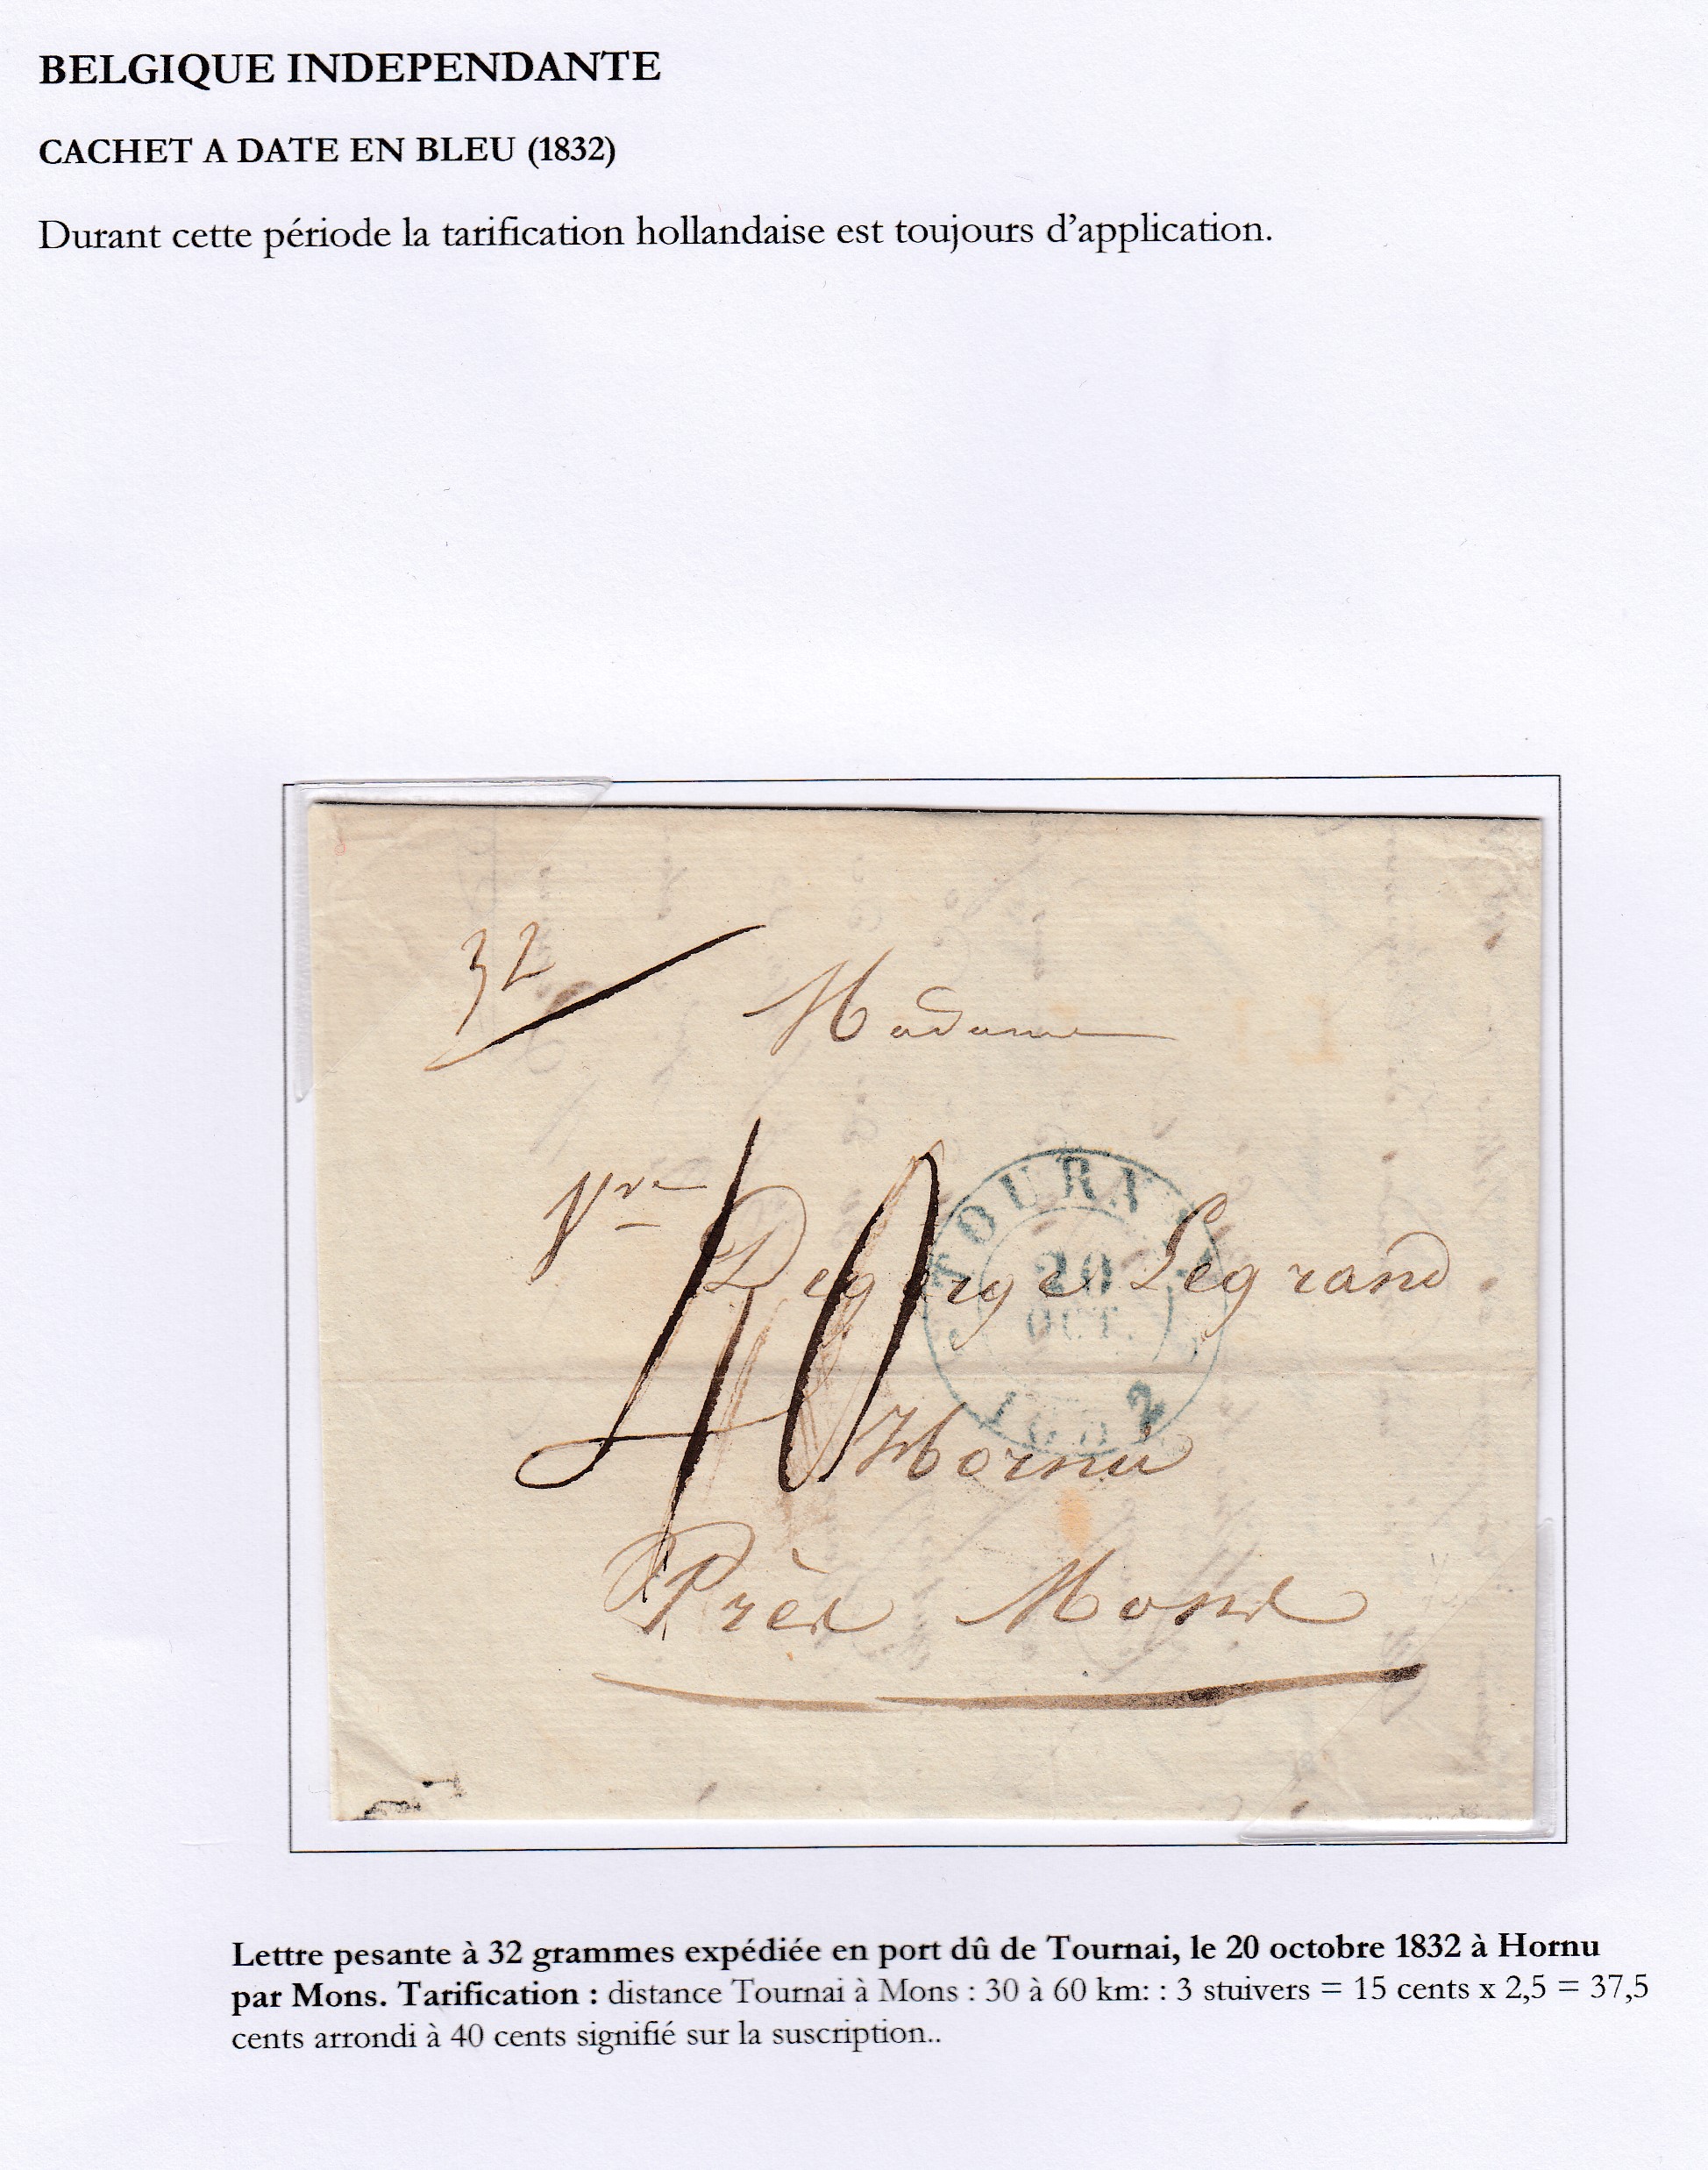 BELGIQUE INDEPENDANTE
CACHET A DATE EN BLEU (1832)
Durant cette période la tarification hollandaise est toujours d'application.
32
Madame
Vve Degorge Legrand
40
TOURNAY
20
OCT.
1832
Hornu
Près Mons
Lettre pesante à 32 grammes expédiée en port dû de Tournai, le 20 octobre 1832 à Hornu
par Mons. Tarification : distance Tournai à Mons : 30 à 60 km: : 3 stuivers = 15 cents x 2,5 = 37,5
cents arrondi à 40 cents signifié sur la suscription..